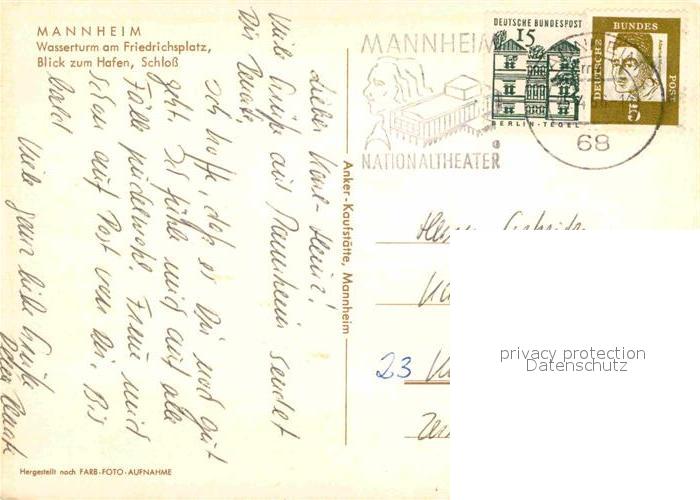 MANNHEIM
Wasserturm am Friedrichsplatz,
Blick zum Hafen, Schloß
MANNHEIM
NATIONALTHEATER
DEUTSCHE BUNDESPOST
15
BERLIN-TEGEL
DEUTSCHE
BUNDES
POST
5
68
Viele Grüße aus Mannheim sendet
Dir Renate
Lieber Hans-Heinz!
Ich hoffe, daß es Dir noch gut
geht. Ich fühle mich auf alle
Fälle pudelwohl. Freue mich
schon auf Post von Dir. Bis
bald
Viele ganz liebe Grüße
Deine Renate
Anker-Kaufstätte, Mannheim
Herrn
23
Hergestellt nach FARB-FOTO-AUFNAHME
privacy protection
Datenschutz